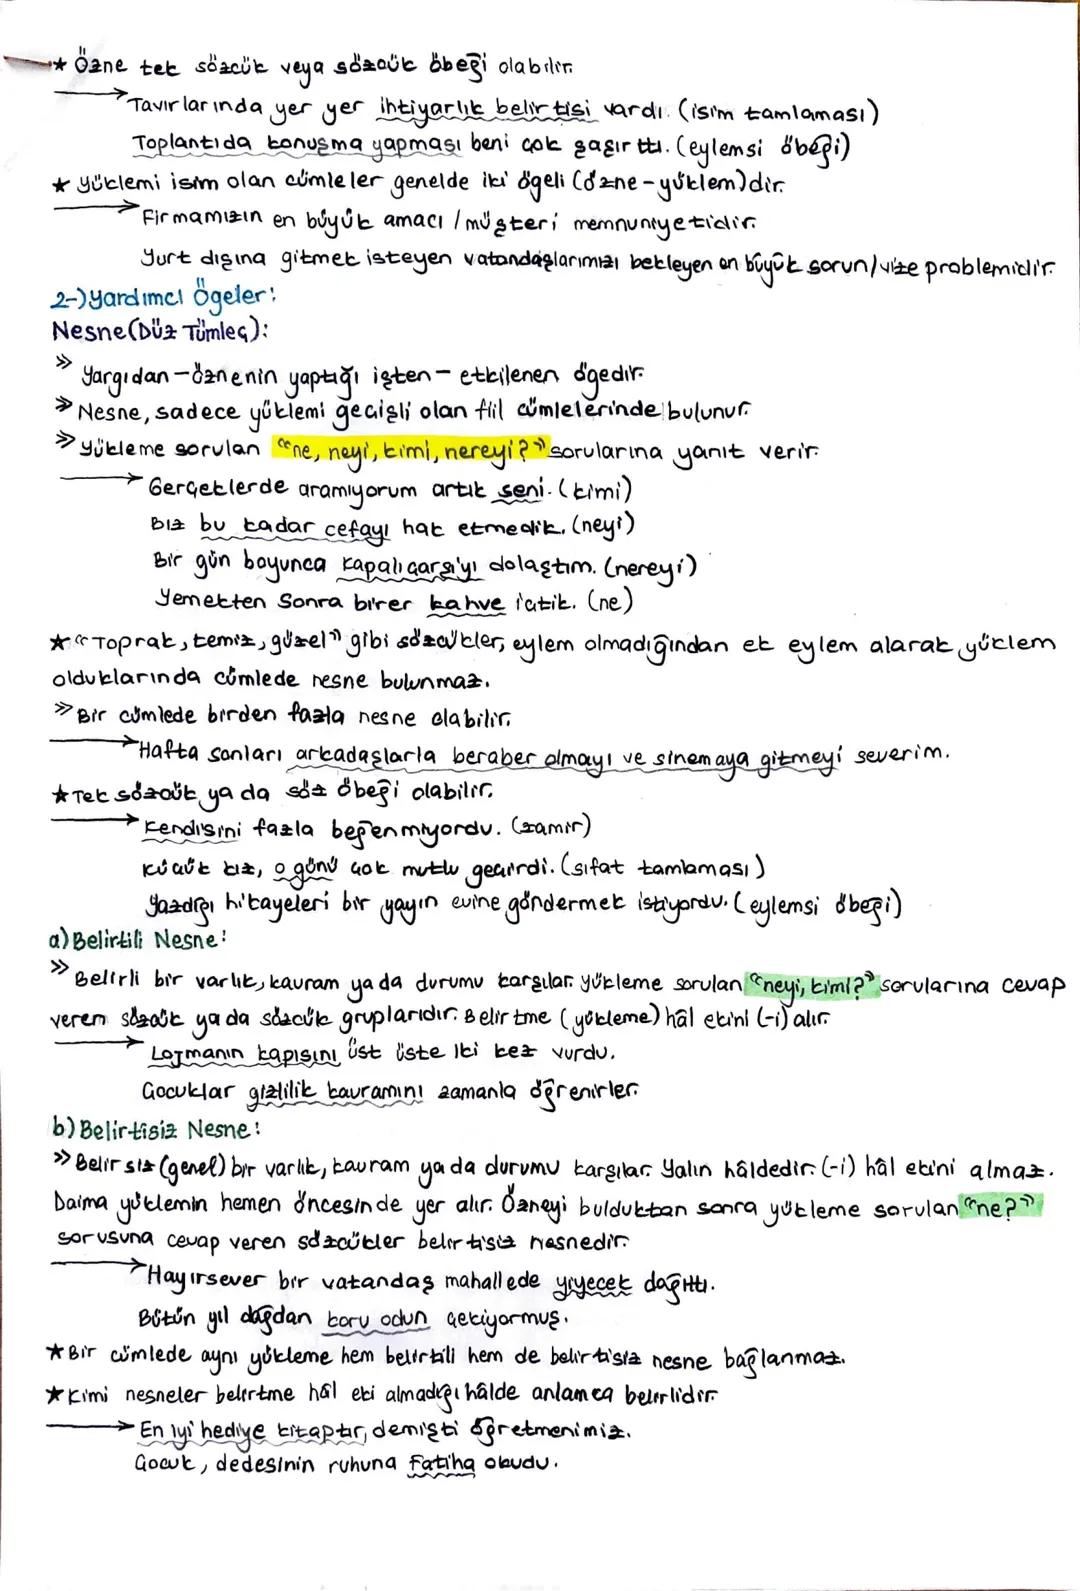 ★ Özne tek sözcük veya sözcük öbeği olabilir.
Tavırlarında yer yer ihtiyarlık belirtisi vardı. (isim tamlaması)
Toplantıda konuşma yapması beni çok şaşırttı. (eylemsi öbeği)
★ Yüklemi isim olan cümleler genelde iki ögeli (özne-yüklem)dir.
Firmamızın en büyük amacı / müşteri memnuniyetidir.
Yurt dışına gitmek isteyen vatandaşlarımızı bekleyen en büyük sorun/vize problemidir.
2-) Yardımcı Ögeler:
Nesne (Düz Tümleç):
» Yargıdan - öznenin yaptığı işten - etkilenen ögedir.
» Nesne, sadece yüklemi geçişli olan fiil cümlelerinde bulunur.
» Yükleme sorulan "ne, neyi, kimi, nereyi?" sorularına yanıt verir.
Gerçeklerde aramıyorum artık seni. (kimi)
Biz bu kadar cefayı hak etmedik. (neyi)
Bir gün boyunca Kapalıçarşı'yı dolaştım. (nereyi)
Yemekten Sonra birer kahve içtik. (ne)
★ "Toprak, temiz, güzel" gibi sözcükler, eylem olmadığından ek eylem alarak yüklem
olduklarında cümlede nesne bulunmaz.
» Bir cümlede birden fazla nesne olabilir.
Hafta sonları arkadaşlarla beraber olmayı ve sinemaya gitmeyi severim.
★ Tek sözcük ya da söz öbeği olabilir.
Kendisini fazla beğenmiyordu. (zamir)
Küçük kız, o günü çok mutlu geçirdi. (sıfat tamlaması)
Yazdığı hikayeleri bir yayın evine göndermek istiyordu. (eylemsi öbeği)
a) Belirtili Nesne:
» Belirli bir varlık, kavram ya da durumu karşılar. Yükleme sorulan "neyi, kimi?" sorularına cevap
veren sözcük ya da sözcük gruplarıdır. Belirtme (yükleme) hâl ekini (-i) alır.
Lojmanın kapısını üst üste iki kez vurdu.
Çocuklar gizlilik kavramını zamanla öğrenirler.
b) Belirtisiz Nesne:
» Belirsiz (genel) bir varlık, kavram ya da durumu karşılar. Yalın hâldedir. (-i) hâl ekini almaz.
Daima yüklemin hemen öncesinde yer alır. Özneyi bulduktan sonra yükleme sorulan "ne?"
sorusuna cevap veren sözcükler belirtisiz nesnedir.
Hayırsever bir vatandaş mahallede yiyecek dağıttı.
Bütün yıl dağdan koru odun çekiyormuş.
★ Bir cümlede aynı yükleme hem belirtili hem de belirtisiz nesne bağlanmaz.
★ Kimi nesneler belirtme hâl eki almadığı hâlde anlamca belirlidir.
En iyi hediye kitaptır, demişti öğretmenimiz.
Çocuk, dedesinin ruhuna Fatiha okudu.